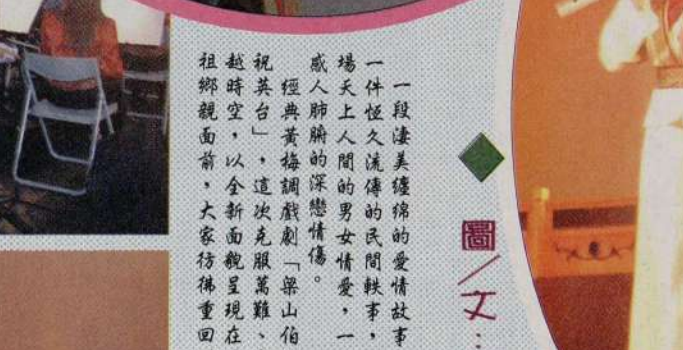 圖／文：
一段淒美纏綿的愛情故事
一件恆久流傳的民間軼事，
場天上人間的男女情愛，一
感人肺腑的深戀情傷。
經典黃梅調戲劇「梁山伯
祝英台」，這次克服萬難、
越時空，以全新面貌呈現在
祖鄉親面前，大家彷彿重回